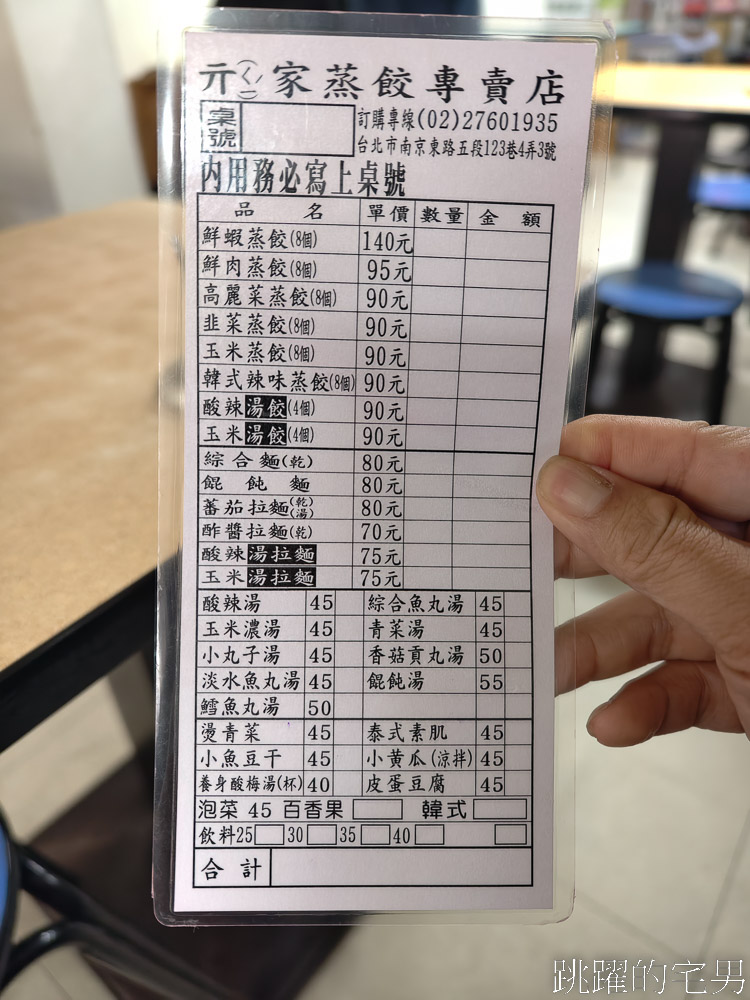 亓(ㄑㄧˊ)家蒸餃專賣店
桌號
訂購專線(02)27601935
台北市南京東路五段123巷4弄3號
內用務必寫上桌號
品 名 單價 數量 金 額
鮮蝦蒸餃(8個) 140元
鮮肉蒸餃(8個) 95元
高麗菜蒸餃(8個) 90元
韭菜蒸餃(8個) 90元
玉米蒸餃(8個) 90元
韓式辣味蒸餃(8個) 90元
酸辣湯餃(4個) 90元
玉米湯餃(4個) 90元
綜合麵(乾) 80元
餛飩麵 80元
蕃茄拉麵(乾)(湯) 80元
酢醬拉麵(乾) 70元
酸辣湯拉麵 75元
玉米湯拉麵 75元
酸辣湯 45 綜合魚丸湯 45
玉米濃湯 45 青菜湯 45
小丸子湯 45 香菇貢丸湯 50
淡水魚丸湯 45 餛飩湯 55
鱈魚丸湯 50
燙青菜 45 泰式素肌 45
小魚豆干 45 小黃瓜(涼拌) 45
養身酸梅湯(杯) 40 皮蛋豆腐 45
泡菜 45 百香果 韓式
飲料25 30 35 40
合計
跳躍的宅男